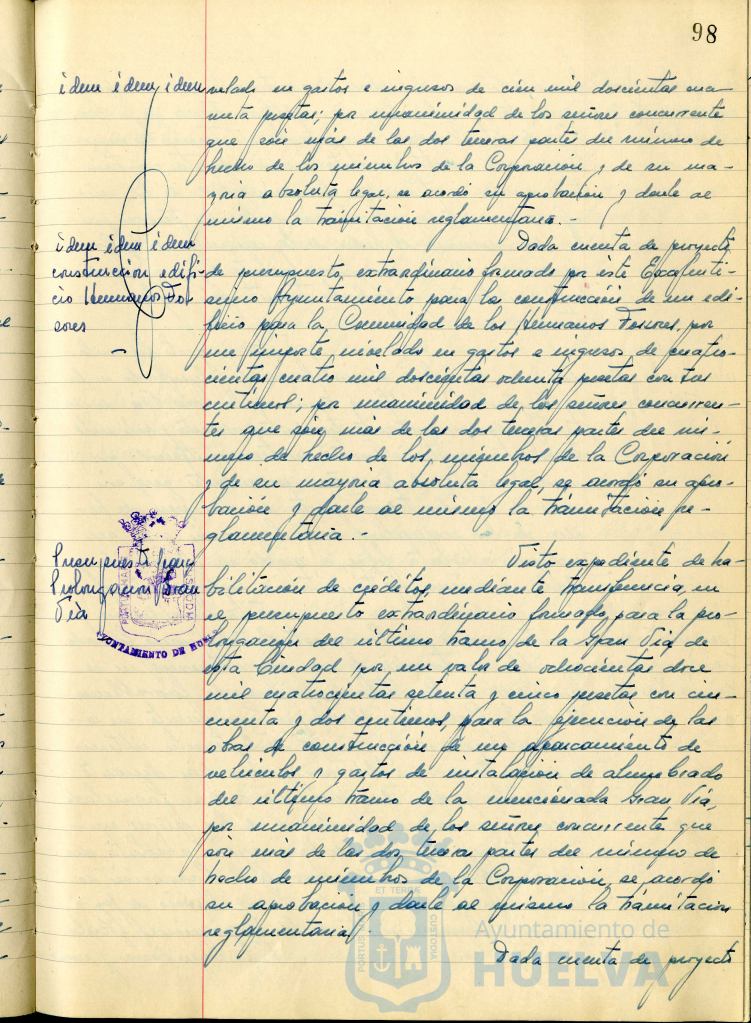 98
idem idem idem
velado en gastos e ingresos de cien mil doscientas cua-
renta pesetas; por unanimidad de los señores concurrente
que son más de las dos terceras partes del número de
hecho de los miembros de la Corporación y de su ma-
yoria absoluta legal, se acordó su aprobación y darle al
mismo la tramitación reglamentaria.-
idem idem idem
construccion edifi-
cio Hermanos Fos-
sores
Dada cuenta de proyecto
de presupuesto extraordinario formado por este Excelentí-
simo Ayuntamiento para la construcción de un edi-
ficio para la Comunidad de los Hermanos Fossores, por
un importe nivelado en gastos e ingresos de cuatro-
cientas cuatro mil doscientas ochenta pesetas con tres
centimos; por unanimidad de los señores concurren-
tes que son más de las dos terceras partes del nú-
mero de hecho de los miembros de la Corporación
y de su mayoria absoluta legal, se acordó su apro-
bación y darle al mismo la tramitación re-
glamentaria.-
Prolongacion Gran
Via
AYUNTAMIENTO DE HUELVA
Visto expediente de ha-
bilitación de créditos, mediante transferencia, en
el presupuesto extraordinario formado para la pro-
longacion del último tramo de la Gran Via de
esta Ciudad por un valor de ochocientas doce
mil cuatrocientas setenta y cinco pesetas con cin-
cuenta y dos centimos, para la ejecución de las
obras de construcción de un aparcamiento de
vehiculos y gastos de instalación de alumbrado
del ultimo tramo de la mencionada Gran Via,
por unanimidad de los señores concurrente que
son más de las dos terceras partes del número de
hecho de miembros de la Corporación, se acordó
su aprobación y darle al mismo la tramitacion
reglamentaria.
Dada cuenta de proyecto
PORTUS ET TERRAE CUSTODIA
Ayuntamiento de
HUELVA